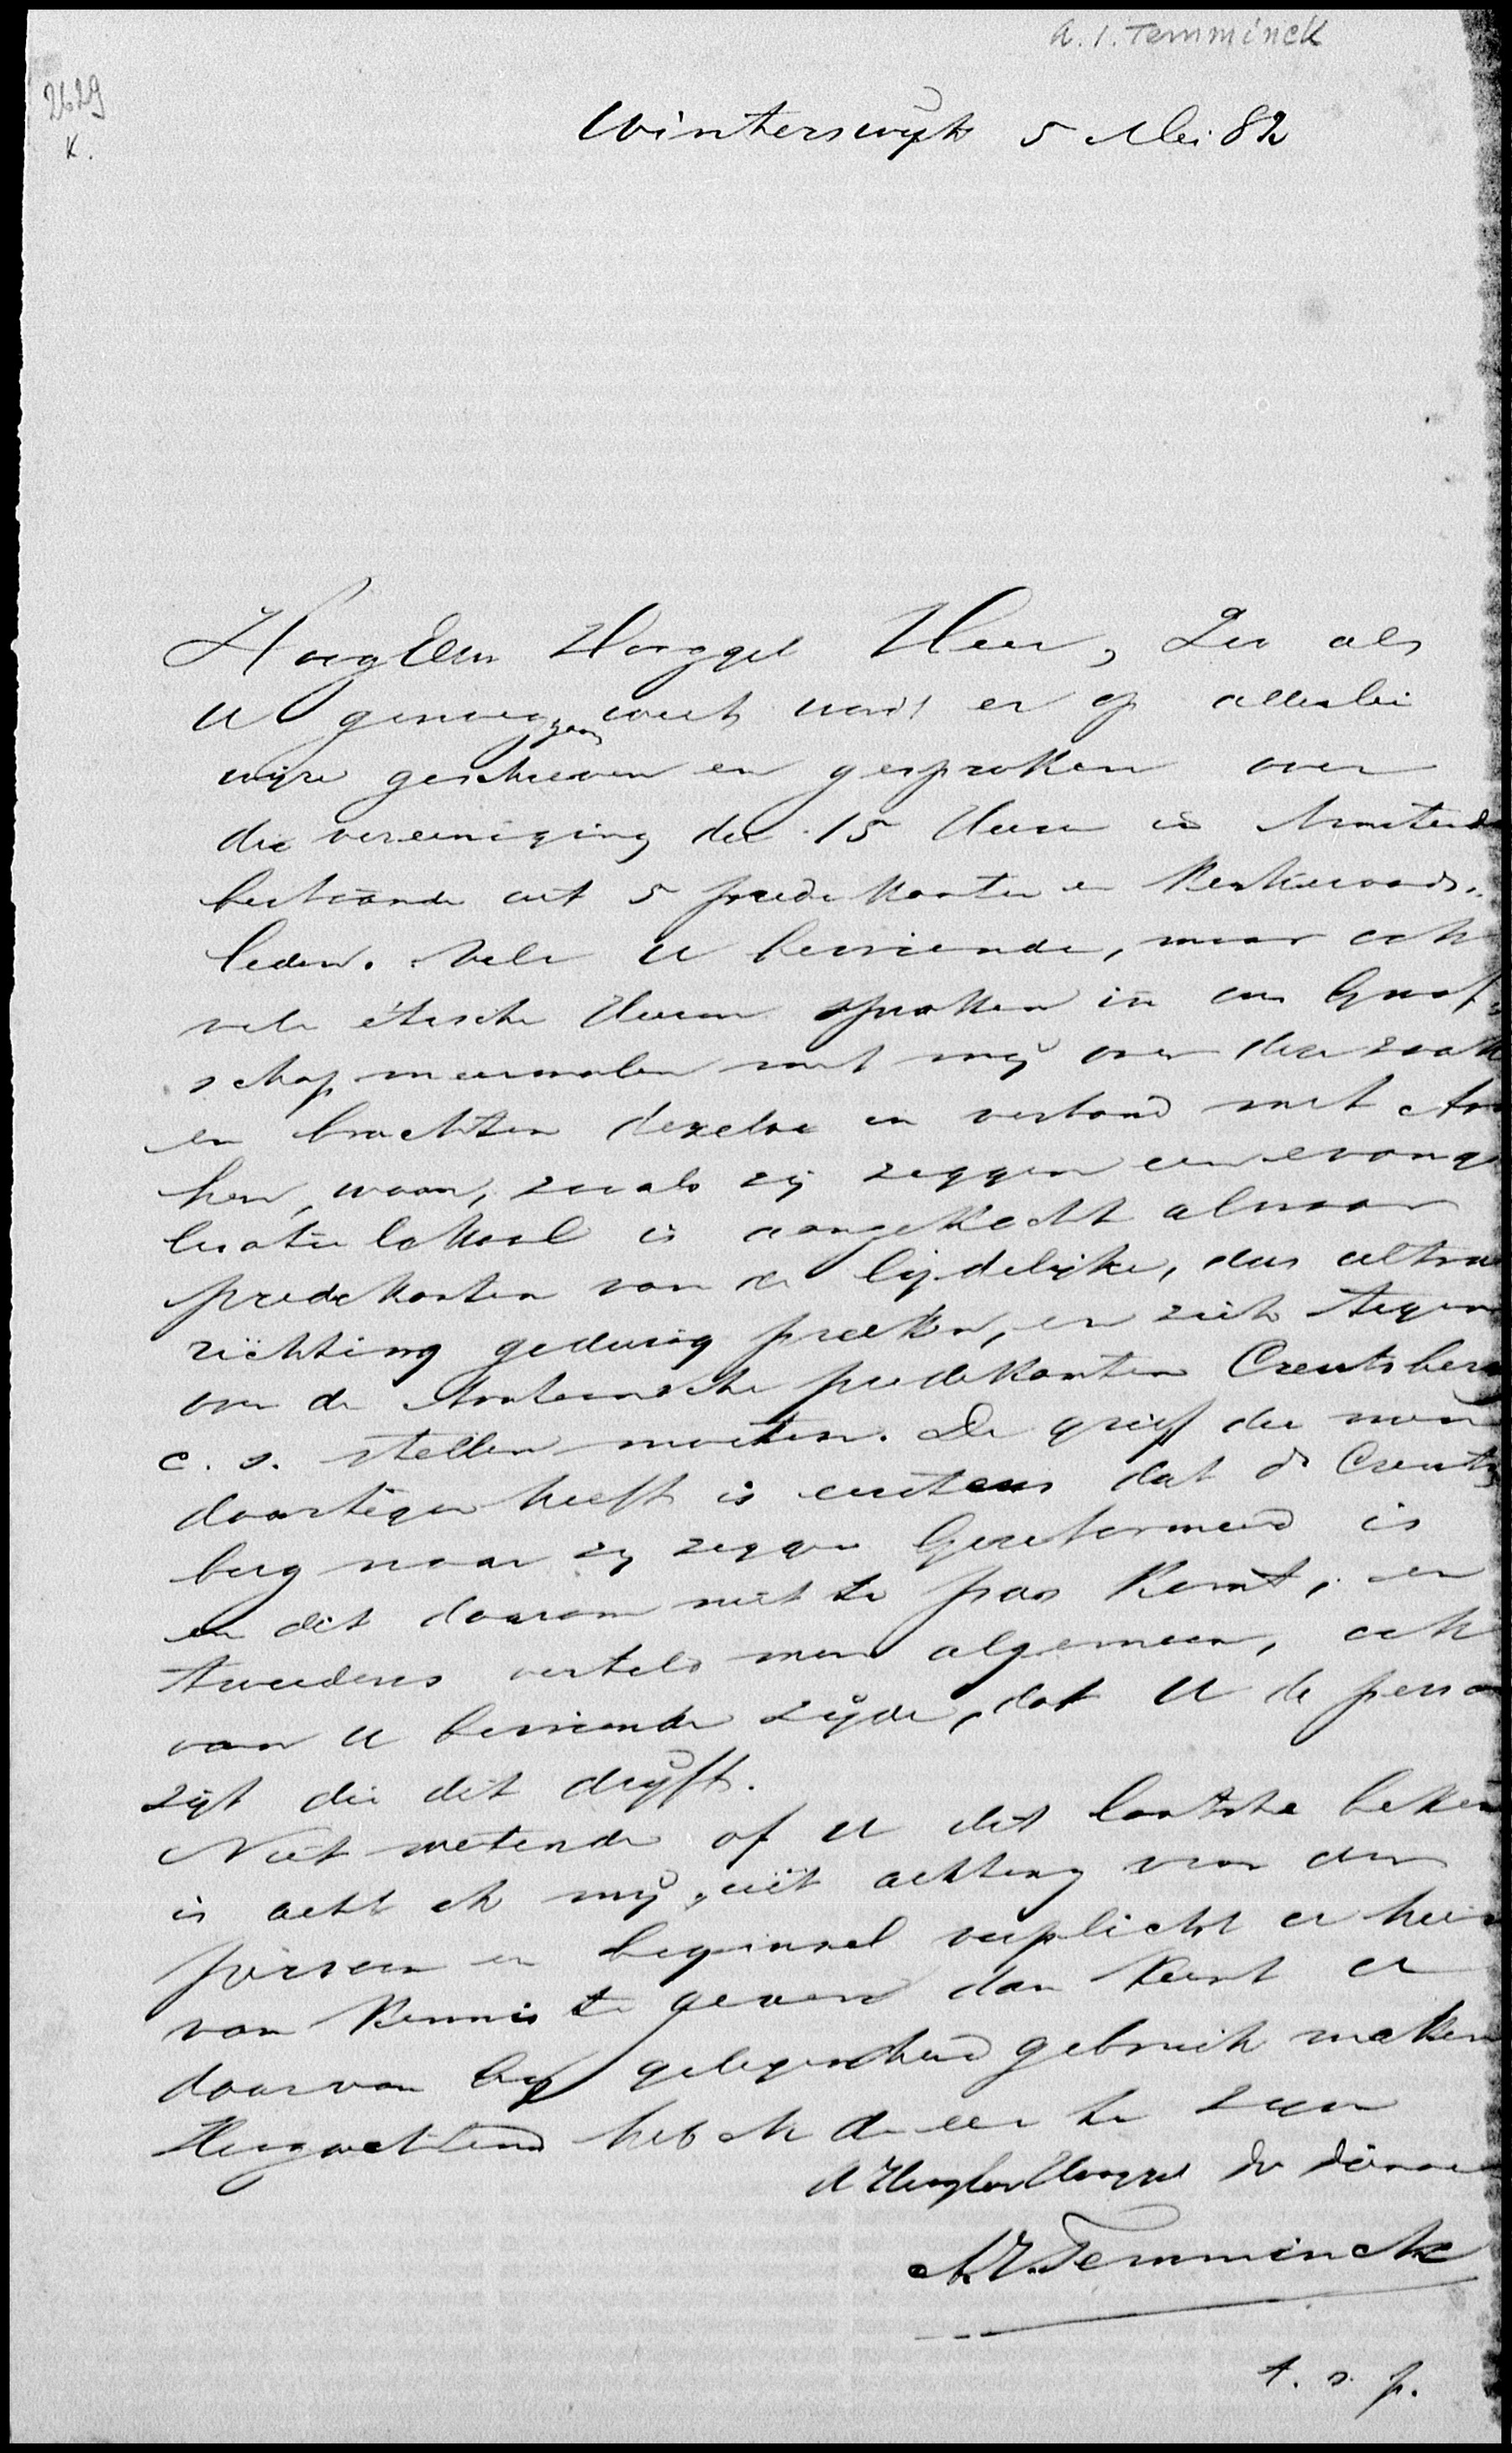 A. I. Temminck
2629
K.
Winterswijk 5 Mei 82
HoogEerw Hooggel Heer, Zoo als
U genoegzaam weet word er op allerlei
wijze geschreven en gesproken over
die vereeniging der 15 Heeren in Amsterd
bestaande uit 5 predekanten en Kerkeraads-
leden. Vele U bevriende, maar ook
vele etische Heeren spraken in ons Graaf
schap meermalen met mij over deze zaak
en brachten dezelve in verband met Arn
hem, waar, zooals zij zeggen een evange
lisatie lokaal is aangekocht alwaar
predekanten van de lijdelijke, dus ultra
richting gedurig preeken, en zich tegen
over de Arnhemsche predekanten Creutsberg
c. s. stellen moeten. De grief die men
daartegen heeft is eerstens dat ds Creuts
berg naar zij zeggen Gereformeerd is
en dit daarom niet te pas komt, en
tweedens verteld men algemeen, ook
van U bevriende zijde, dat U de perso
zijt die dit drijft.
Niet wetende of U dit laatste beken
is acht ik mij, uit achting voor uw
persoon en beginsel verplicht er hier
van kennis te geven dan kunt U
daarvan bij gelegenheid gebruik maken
Hoogachtend heb ik de eer te zijn
UHoogEerw Hooggel dv dienaar
A. I. Temminck
t. s. p.